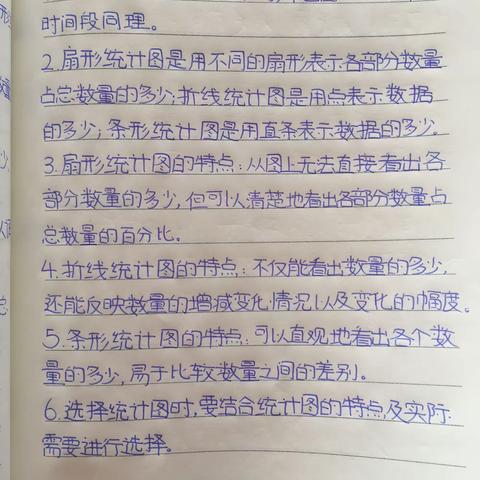 时间段同理。
2.扇形统计图是用不同的扇形表示各部分数量
占总数量的多少;折线统计图是用点表示数据
的多少;条形统计图是用直条表示数据的多少。
3.扇形统计图的特点:从图上无法直接看出各
部分数量的多少,但可以清楚地看出各部分数量占
总数量的百分比。
4.折线统计图的特点:不仅能看出数量的多少,
还能反映数量的增减变化情况以及变化的幅度。
5.条形统计图的特点:可以直观地看出各个数
量的多少,易于比较数量之间的差别。
6.选择统计图时,要结合统计图的特点及实际
需要进行选择。